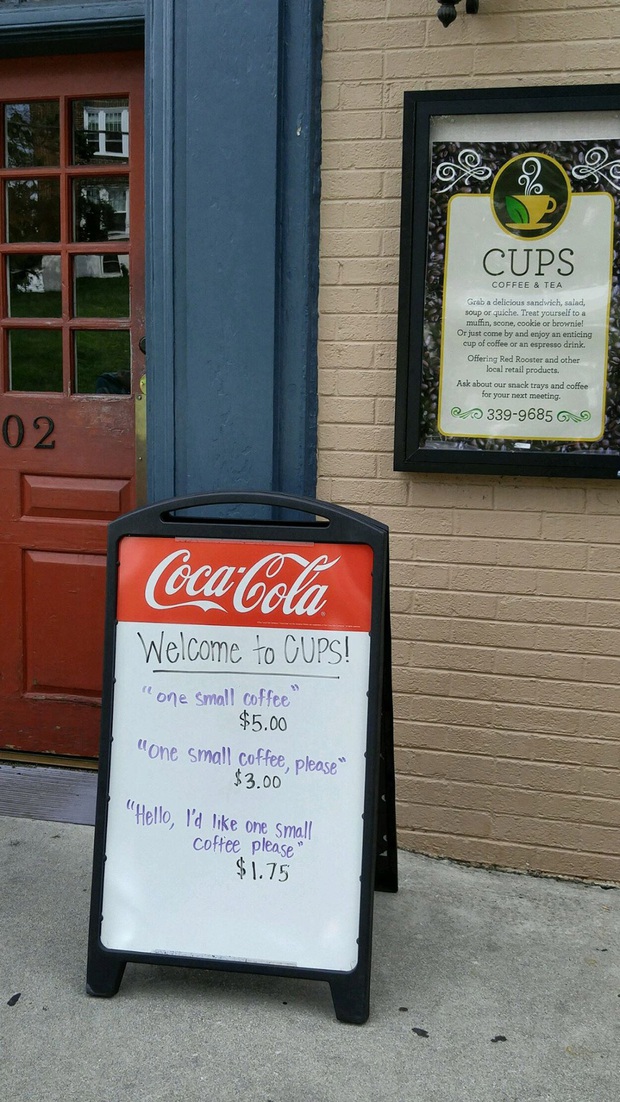 02
CUPS
COFFEE & TEA
Grab a delicious sandwich, salad,
soup or quiche. Treat yourself to a
muffin, scone, cookie or brownie!
Or just come by and enjoy an enticing
cup of coffee or an espresso drink.
Offering Red Rooster and other
local retail products.
Ask about our snack trays and coffee
for your next meeting.
339-9685
Coca-Cola
Welcome to CUPS!
"one small coffee"
$5.00
"One small coffee, please"
$3.00
"Hello, I'd like one small
coffee please"
$1.75